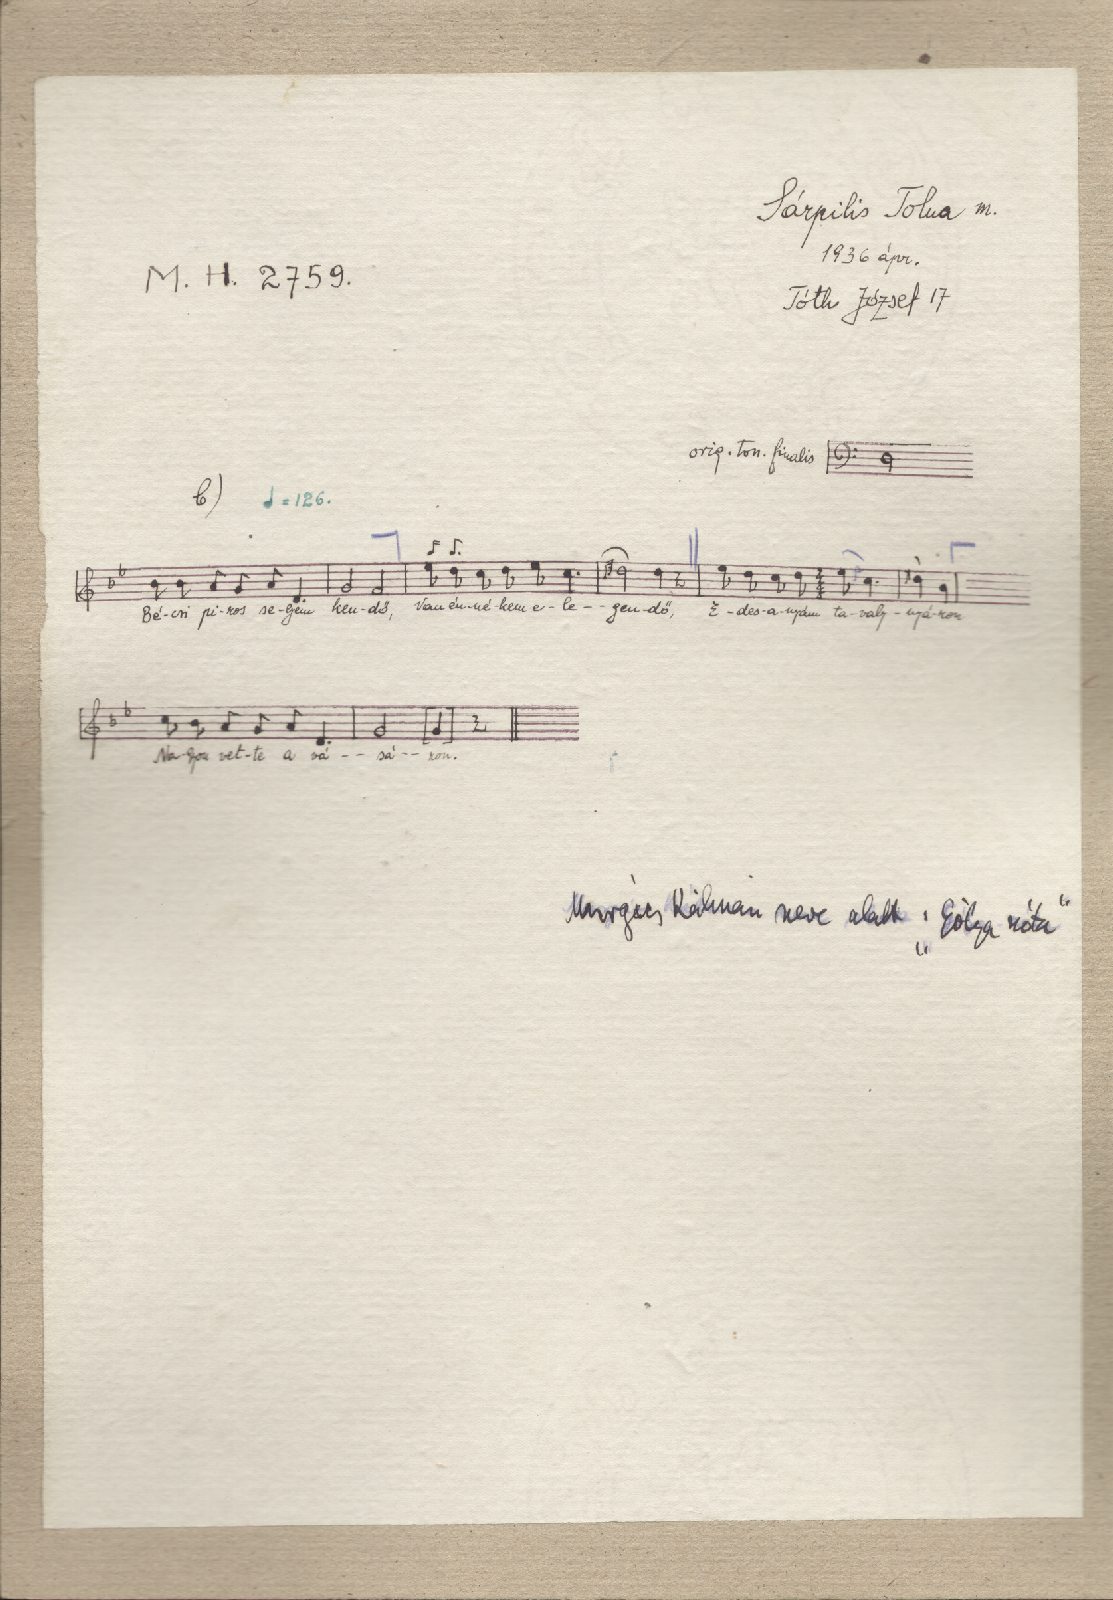 Sárpilis Tolna m.
1936 ápr.
M. H. 2759.
Tóth József 17
orig. ton. finalis
b) ♩ = 126.
Bé-csi pi-ros se-lyem ken-dő, Van én-né-kem e-le-- gen-dő, É-des-a-nyám ta-valy-nyá-ron
Na-gyon vet-te a vá--- sá--- ron.
Murgács Kálmán neve alatt: „Gólya nóta"